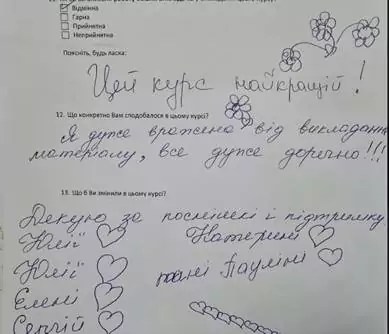 Відмінна
Гарна
Прийнятна
Неприйнятна
Поясніть, будь ласка:
Цей курс найкращий!
12. Що конкретно Вам сподобалося в цьому курсі?
Я дуже вражена від викладання
матеріалу, все дуже доречно!!!
13. Що б Ви змінили в цьому курсі?
Дякую за посмішкі і підтримку
Юлії Катерині
Юлії пані Пауліні
Елені
Сергій